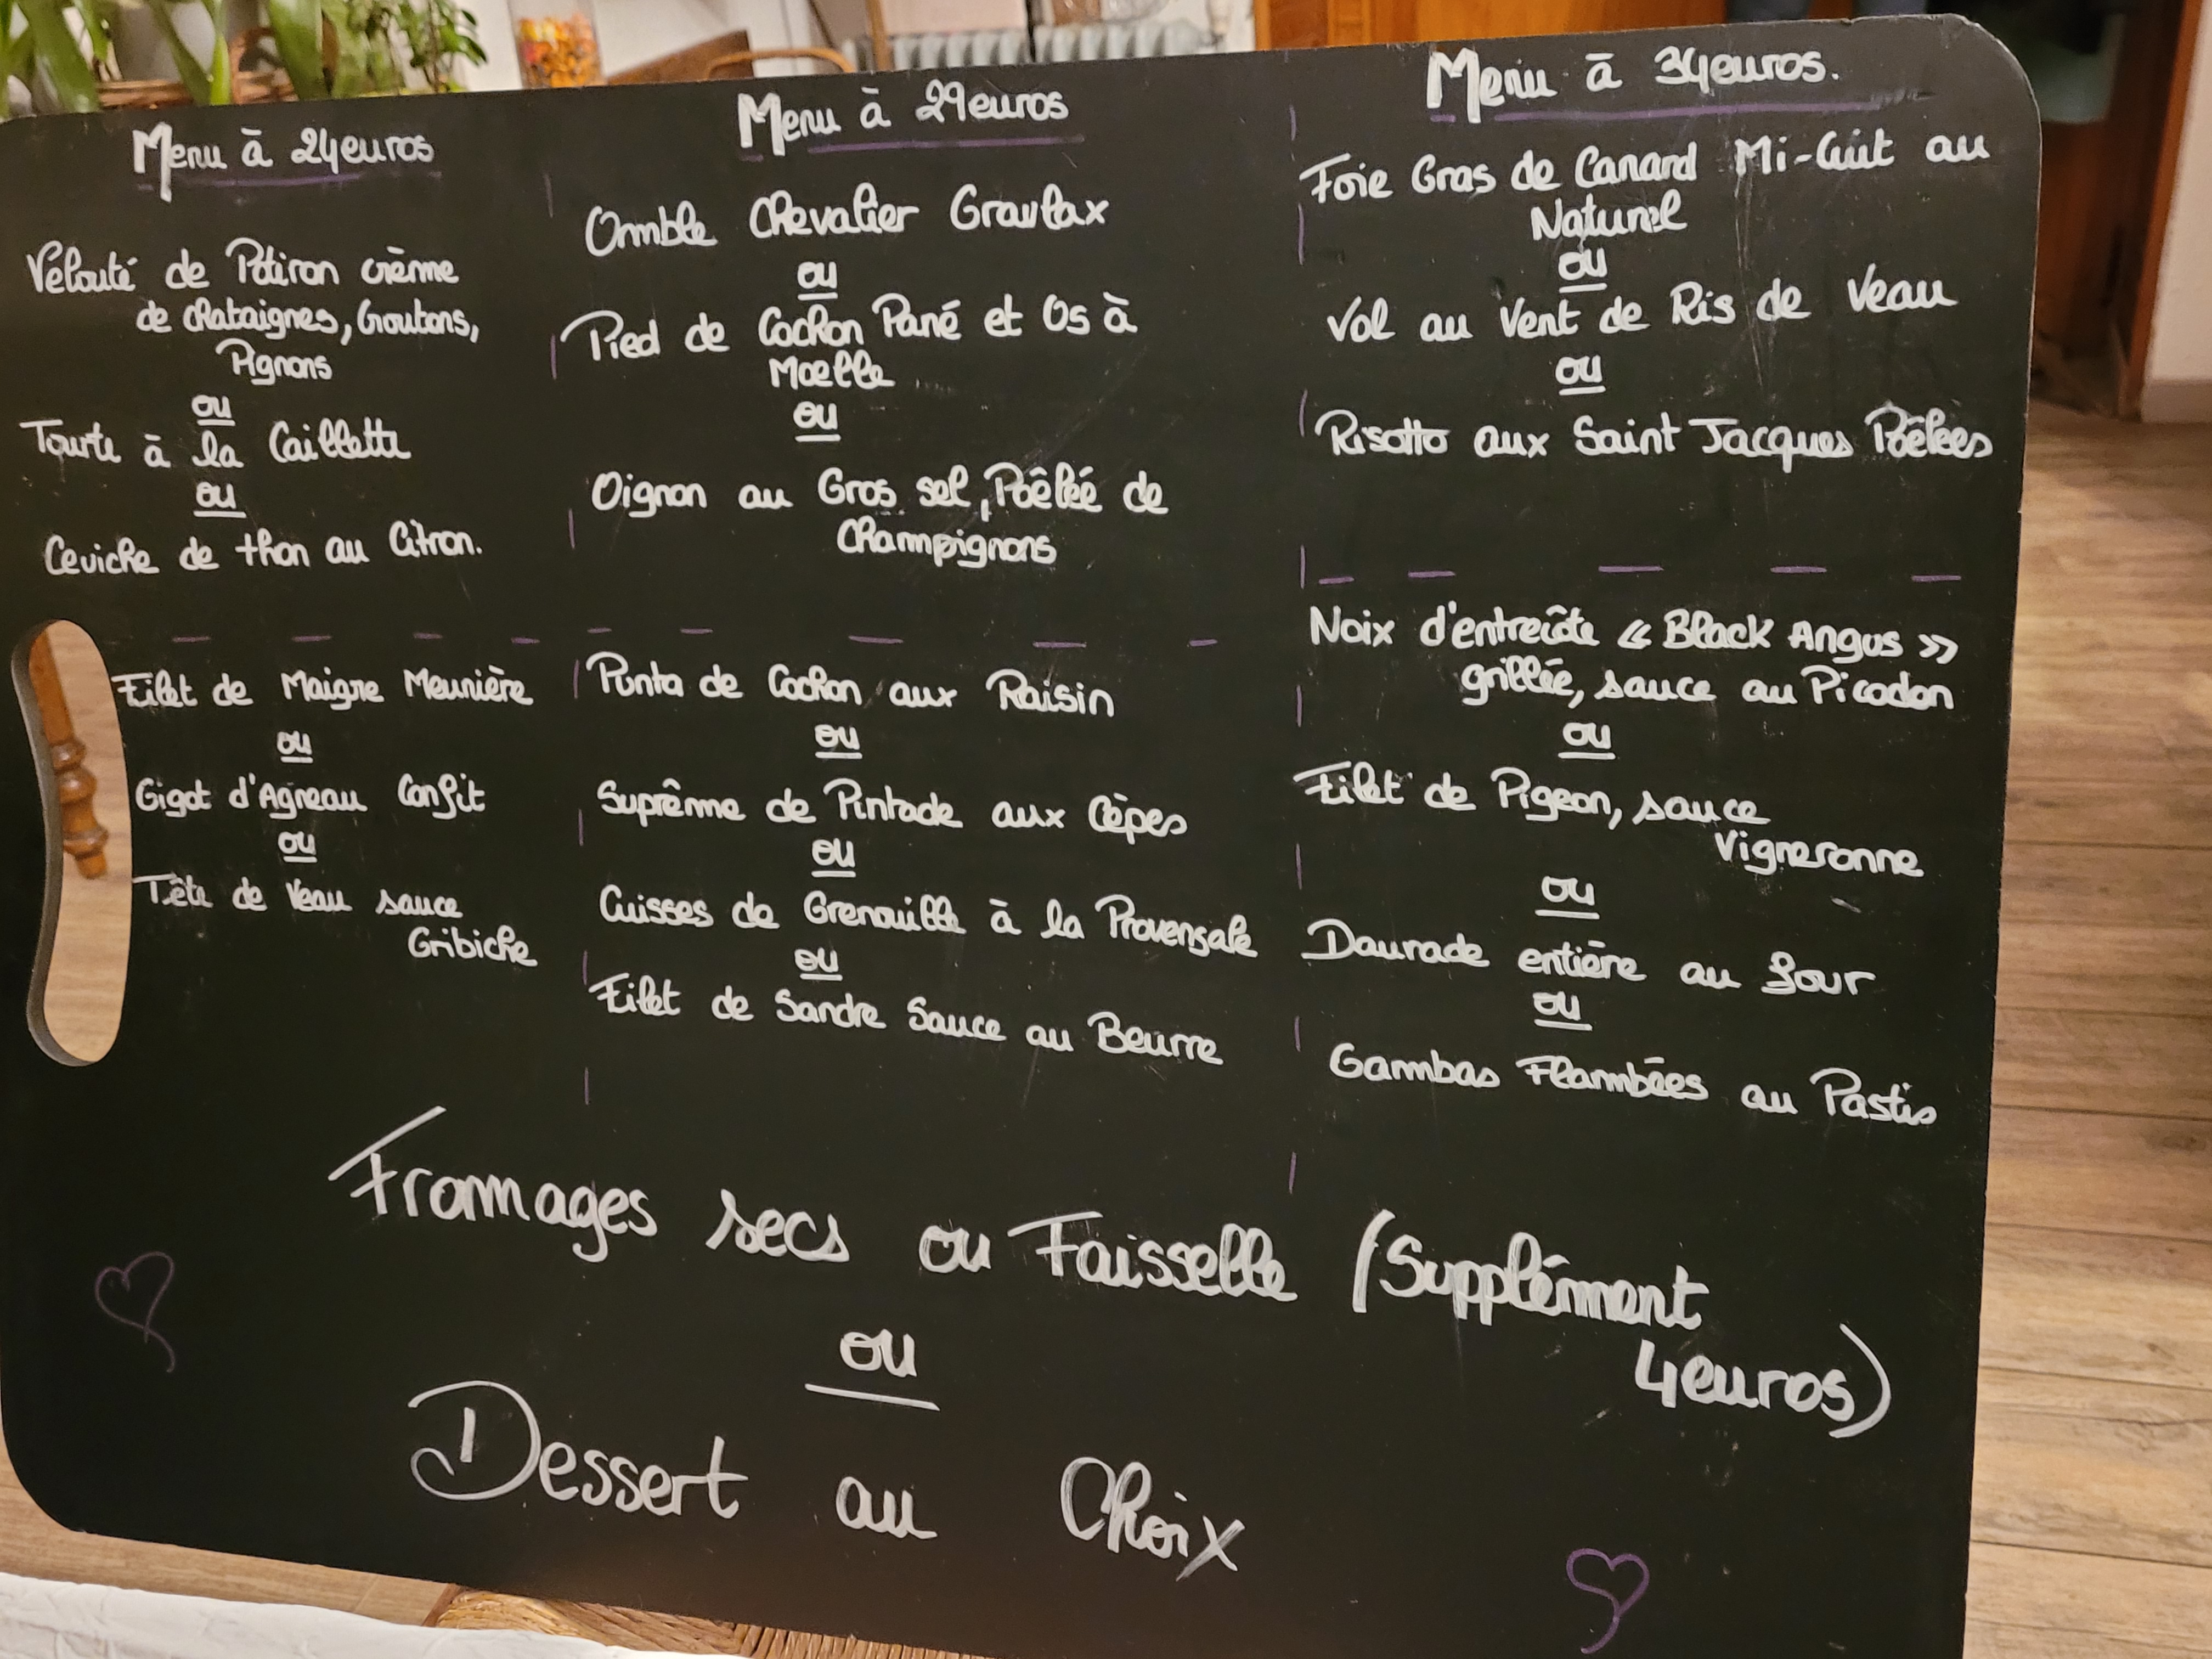 Menu à 24euros
Velouté de Potiron crème
de chataignes, Croutons,
Pignons
ou
Tourte à la Caillette
ou
Ceviche de thon au Citron.
Filet de Maigre Meunière
ou
Gigot d'Agneau Confit
ou
Tête de Veau sauce
Gribiche
Menu à 29euros
Omble Chevalier Gravlax
ou
Pied de Cochon Pané et Os à
Moelle
ou
Oignon au Gros sel, Poêlée de
Champignons
Punta de Cochon aux Raisin
ou
Suprême de Pintade aux Cèpes
ou
Cuisses de Grenouille à la Provençale
ou
Filet de Sandre Sauce au Beurre
Menu à 34euros.
Foie Gras de Canard Mi-Cuit au
Naturel
ou
Vol au Vent de Ris de Veau
ou
Risotto aux Saint Jacques Poêlées
Noix d'entrecôte « Black Angus »
grillée, sauce au Picodon
ou
Filet de Pigeon, sauce
Vigneronne
ou
Daurade entière au four
ou
Gambas Flambées au Pastis
Fromages secs ou Faisselle (Supplément
4euros)
ou
Dessert au Choix